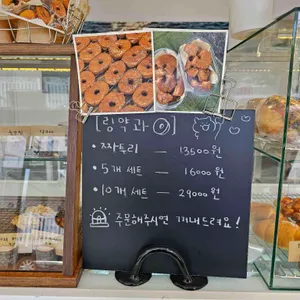 [링약과]
• 짜투리 — 13500원
• 5개 세트 — 16000원
• 10개 세트 — 29000원
주문해주시면 꺼내드려요!